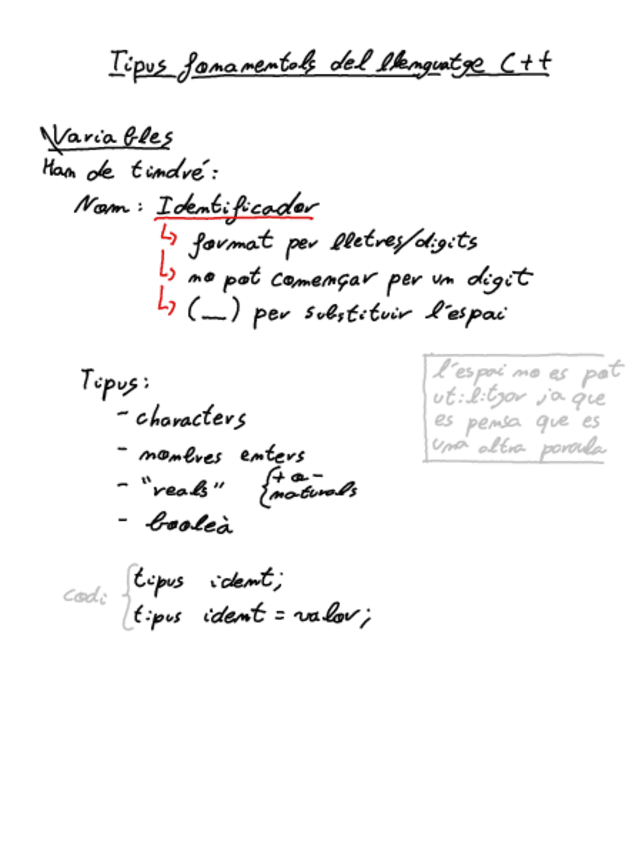 Tipus fonamentals del llenguatge C++
Variables
Han de tindré:
Nom: Identificador
↳ format per lletres/digits
↳ no pot començar per un digit
↳ (_) per substituir l'espai
Tipus:
- characters
- nombres enters
- "reals" { + o -
naturals
- booleà
l'espai no es pot
utilitzar ja que
es pensa que es
una altra paraula
codi { tipus ident;
tipus ident = valor;